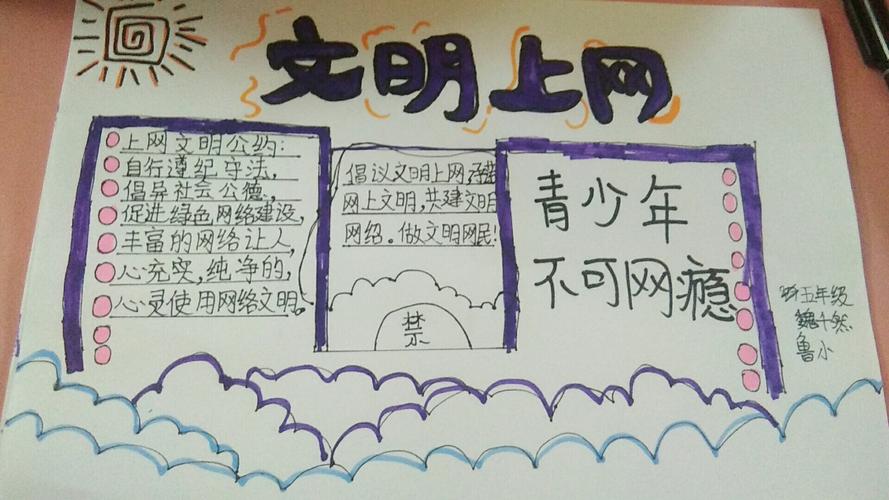 文明上网
上网文明公约:
自行遵纪守法,
倡导社会公德,
促进绿色网络建设,
丰富的网络让人,
心充实,纯净的,
心灵使用网络文明。
倡议文明上网承诺
网上文明,共建文明
网络。做文明网民!
禁
青少年
不可网瘾
五年级
魏
鲁小